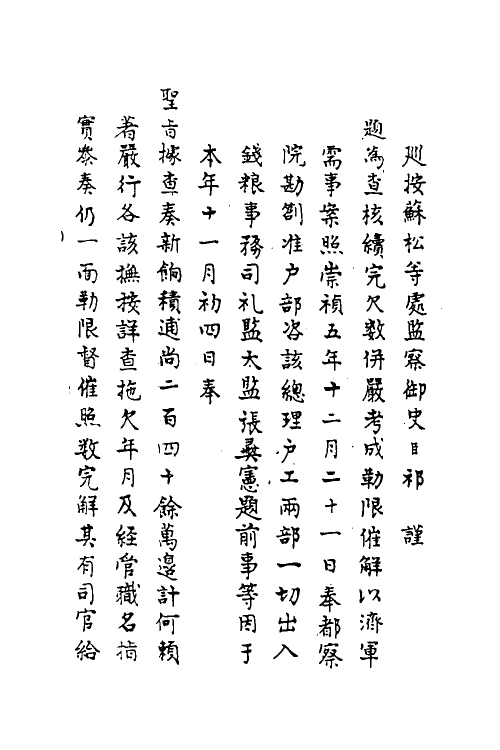 廵按蘇松等處監察御史臣祁 謹
題為查核續完欠数併嚴考成勒限催解以濟軍
需事案照崇禎五年十二月二十一日奉都察
院勘劄准户部咨該總理户工兩部一切出入
錢粮事務司礼監太監張彝憲題前事等因于
本年十一月初四日奉
聖旨據查奏新餉積逋尚二百四十餘萬邊計何賴
着嚴行各該撫按詳查拖欠年月及經管職名指
實叅奏仍一面勒限督催照数完解其有司官給